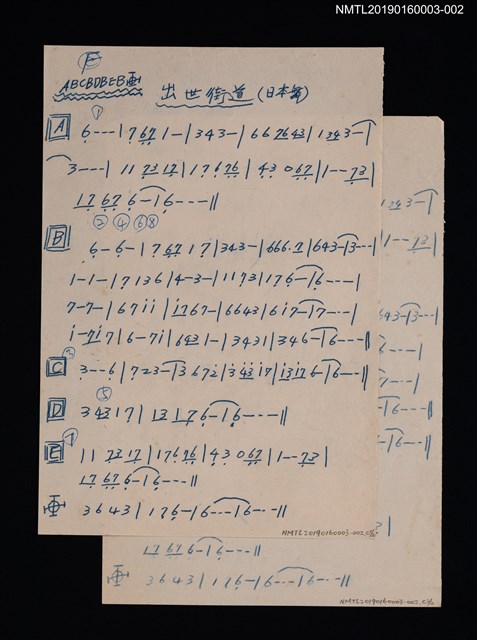 NMTL20190160003-002
F
ABCBDBEB
出世街道(日本篇)
①
A 6---|7671-|343-|667643|1343-|
3---|117317|17676|43067|1--73|
17676-|6---||
② ④ ⑥ ⑧
B 6-6-|76717|343-|666.7|643-|3---|
1-1-|7136|4-3-|1173|176-|6---|
7-7-|67ii|i767-|6643|6i7-|7---|
i-7i7|6-7i|6431-|3431|346-|6---||
③
C 3---6|723-|3672|343i7|i3176-|6---||
⑤
D 34317|13|176-|6---||
⑦
E 117317|17676|43067|1--73|
17676-|6---||
3643|176-|6---|6---||
NMTL20190160003-002
1767 6-|6---||
3643|176-|6---|6---||
NMTL20190160003-002